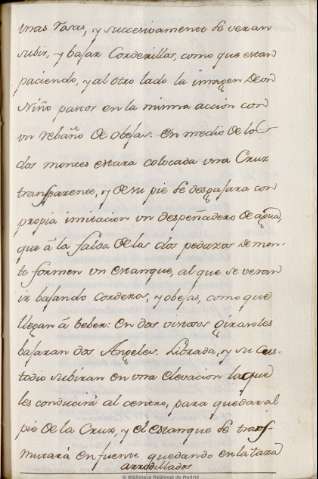 unas Rosas, y successivamente se veran
subir, y bajar Corderillos, como que estan
paciendo, y al otro lado la imagen de un
Niño pastor en la misma accion con
un rebaño de obejas. En medio de los
dos montes estara colocada una Cruz
transparente, y de su pie se desgajara con
propia imitacion un despeñadero de agua,
que â la falda de las dos pedazos de mon-
te formen un estanque, al que se veran
ir bajando corderos, y obejas, como que
llegan â beber: En dos vistosos girasoles
bajaran dos Angeles. Librada, y su Cus-
todio subiran en una elevacion la que
les conducirá al centro, para quedar al
pie de la Cruz, y el estanque se trans
mutará en fuente quedando en la taza
arrodillados
© Biblioteca Nacional de Madrid